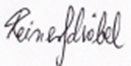 Reiner Schöbel